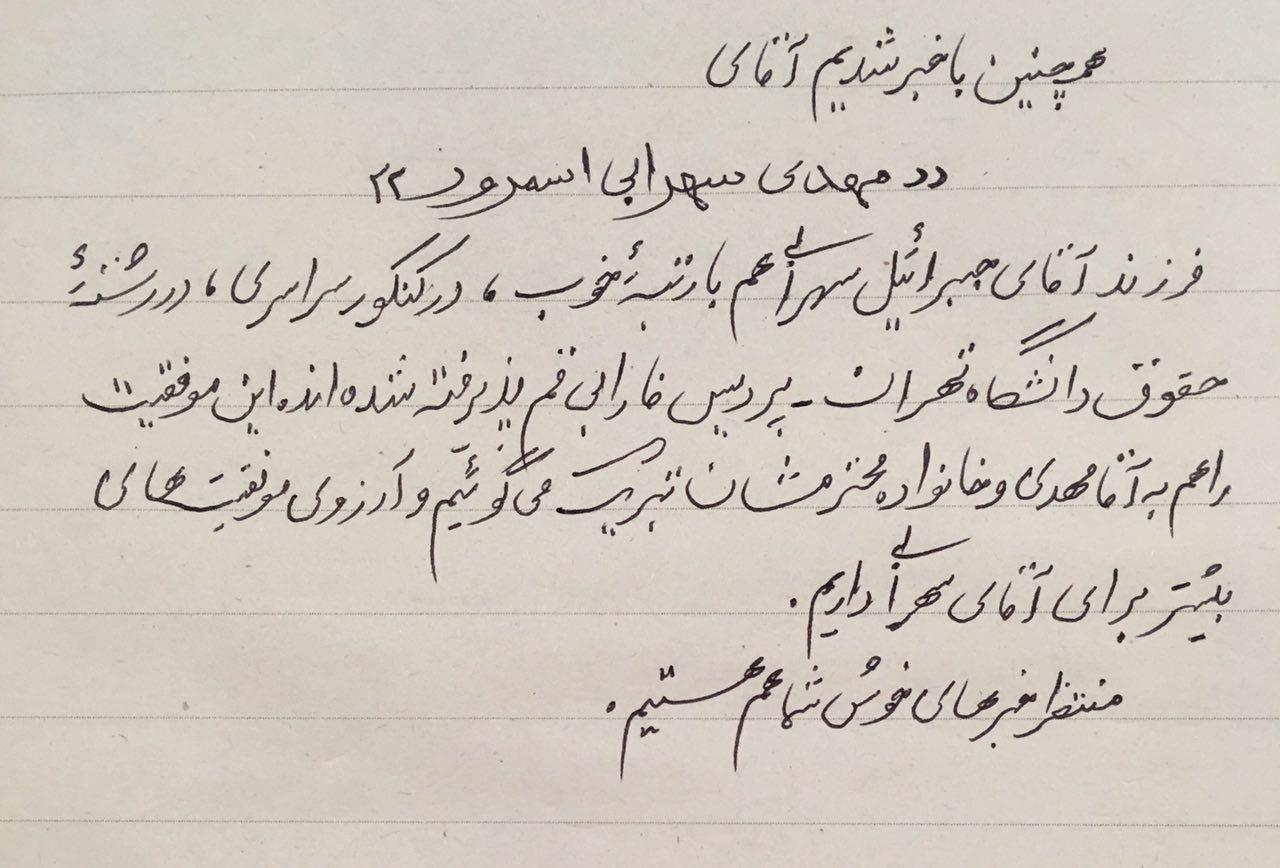 همچنین باخبر شدیم آقای
«مهدی سهرابی اسمرود»
فرزند آقای جبرائیل سهرابی هم با رتبهٔ خوب، در کنکور سراسری، در رشتهٔ
حقوق دانشگاه تهران - پردیس فارابی قم پذیرفته شده اند. این موفقیت
را هم به آقا مهدی و خانواده محترمشان تبریک می گوئیم و آرزوی موفقیت های
بیشتر برای آقای سهرابی داریم.
منتظر خبرهای خوش شما هم هستیم.